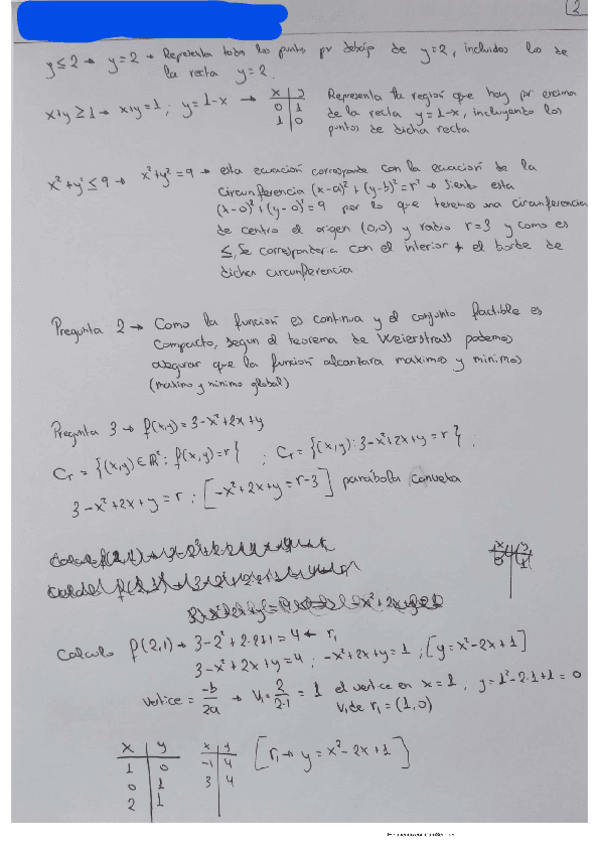 2
y ≤ 2 → y = 2 → Representa todos los puntos por debajo de y = 2, incluidos los de
la recta y = 2.
x+y ≥ 1 → x+y = 1 ; y = 1-x → x y Representa la región que hay por encima
0 1 de la recta y = 1-x, incluyendo los
1 0 puntos de dicha recta
x²+y² ≤ 9 → x²+y² = 9 → esta ecuación corresponde con la ecuación de la
circunferencia (x-a)²+(y-b)² = r² → siento esta
(x-0)²+(y-0)² = 9 por lo que tenemos una circunferencia
de centro el origen (0,0) y radio r=3 y como es
≤, se correspondería con el interior + el borde de
dicha circunferencia
Pregunta 2 → Como la función es continua y el conjunto factible es
compacto, segun el teorema de Weierstrass podemos
asegurar que la funcion alcantara maximos y minimos
(maximo y minimo global)
Pregunta 3 → f(x,y) = 3-x²+2x+y
Cr = {(x,y) ∈ ℝ² : f(x,y) = r} ; Cr = {(x,y) : 3-x²+2x+y = r} ;
3-x²+2x+y = r ; [-x²+2x+y = r-3] parábola convexa
Calculo f(2,1) → 3-2²+2·2+1 = 4 ← r₁
3-x²+2x+y = 4 ; -x²+2x+y = 1 ; [y = x²-2x+1]
vertice = -b/2a → V₁ = 2/2·1 = 1 el vertice en x = 1 ; y = 1²-2·1+1 = 0
V₁ de r₁ = (1,0)
x y x y [r₁ → y = x²-2x+1]
1 0 -1 4
0 1 3 4
2 1